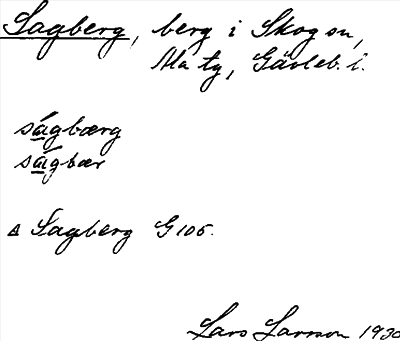 Sagberg, berg i Skog sn,
Ala tg, Gävleb. l.
ságbærg
ságbær
Δ Sagberg G 105.
Lars Larsson 1930